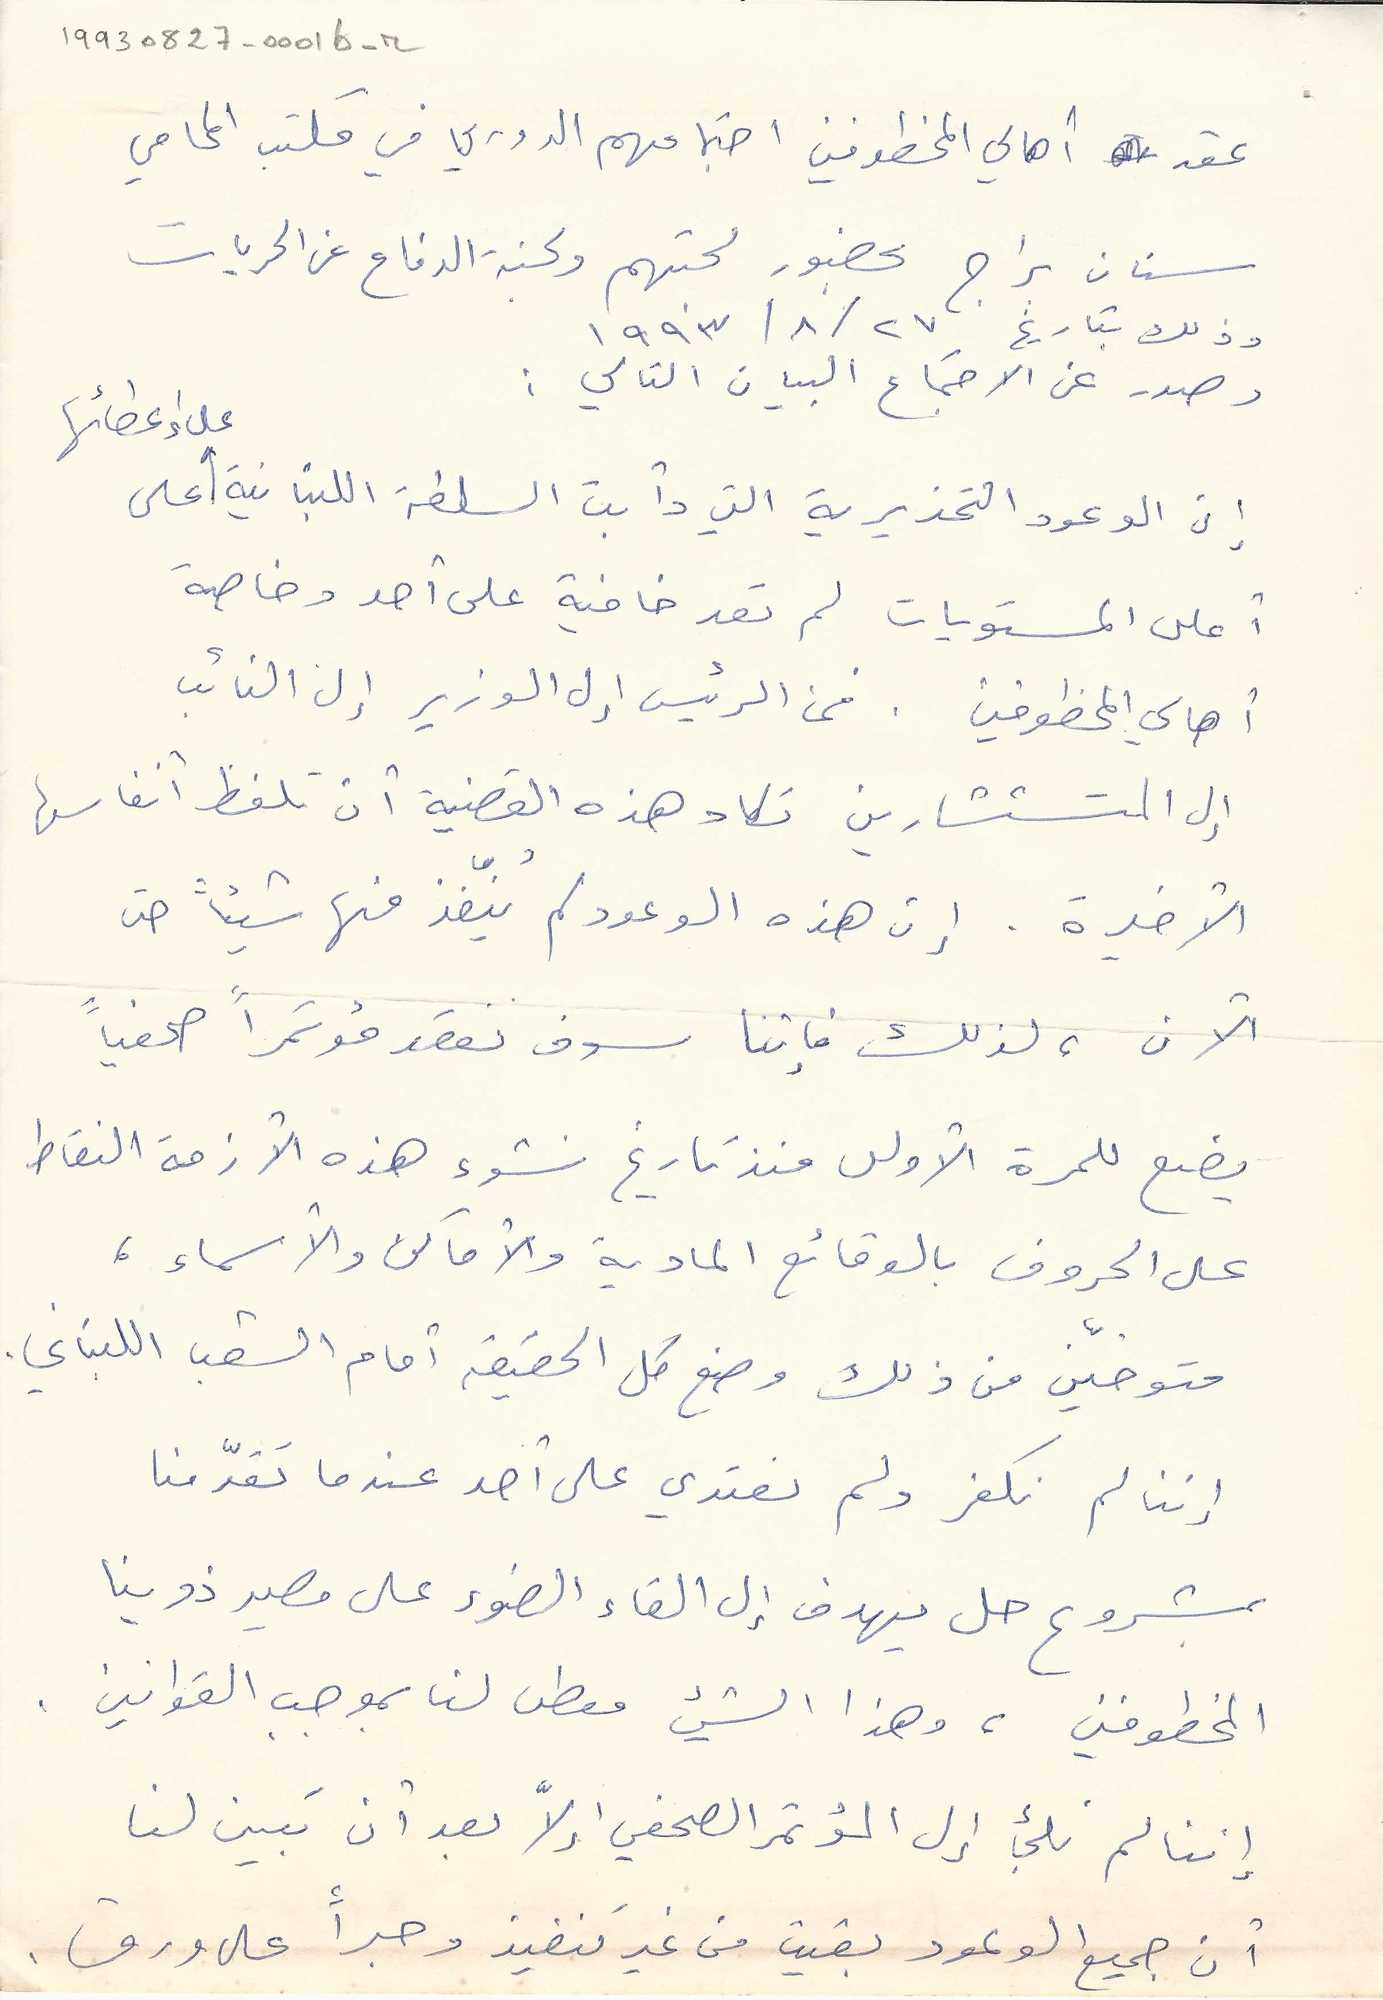 19930827-0001b-r
عقد أهالي المخطوفين اجتماعهم الدوري في مكتب المحامي
سنان براج بحضور لجنتهم ولجنة الدفاع عن الحريات
وذلك بتاريخ ٢٧/ ٨/ ١٩٩٣
وصدر عن الاجتماع البيان التالي :
على إعطائها
إن الوعود التخديرية التي دأبت السلطة اللبنانية على
أعلى المستويات لم تعد خافية على أحد وخاصة
أهالي المخطوفين . فمن الرئيس إلى الوزير إلى النائب
إلى المستشارين تكاد هذه القضية أن تلفظ أنفاسها
الأخيرة . إن هذه الوعود لم يُنفّذ منها شيئاً حتى
الآن ، لذلك فإننا سوف نعقد مؤتمراً صحفياً
يضع للمرة الأولى منذ تاريخ نشوء هذه الأزمة النقاط
على الحروف بالوقائع المادية والأماكن والأسماء ،
متوخّين من ذلك وضع كل الحقيقة أمام الشعب اللبناني .
إننا لم نكفر ولم نعتدي على أحد عندما تقدّمنا
بمشروع حل يهدف إلى القاء الضوء على مصير ذوينا
المخطوفين ، وهذا الشيئ معطى لنا بموجب القوانين .
إننا لم نلجأ إلى المؤتمر الصحفي إلاّ بعد أن تبين لنا
أن جميع الوعود بقيت من غير تنفيذ وحبراً على ورق .